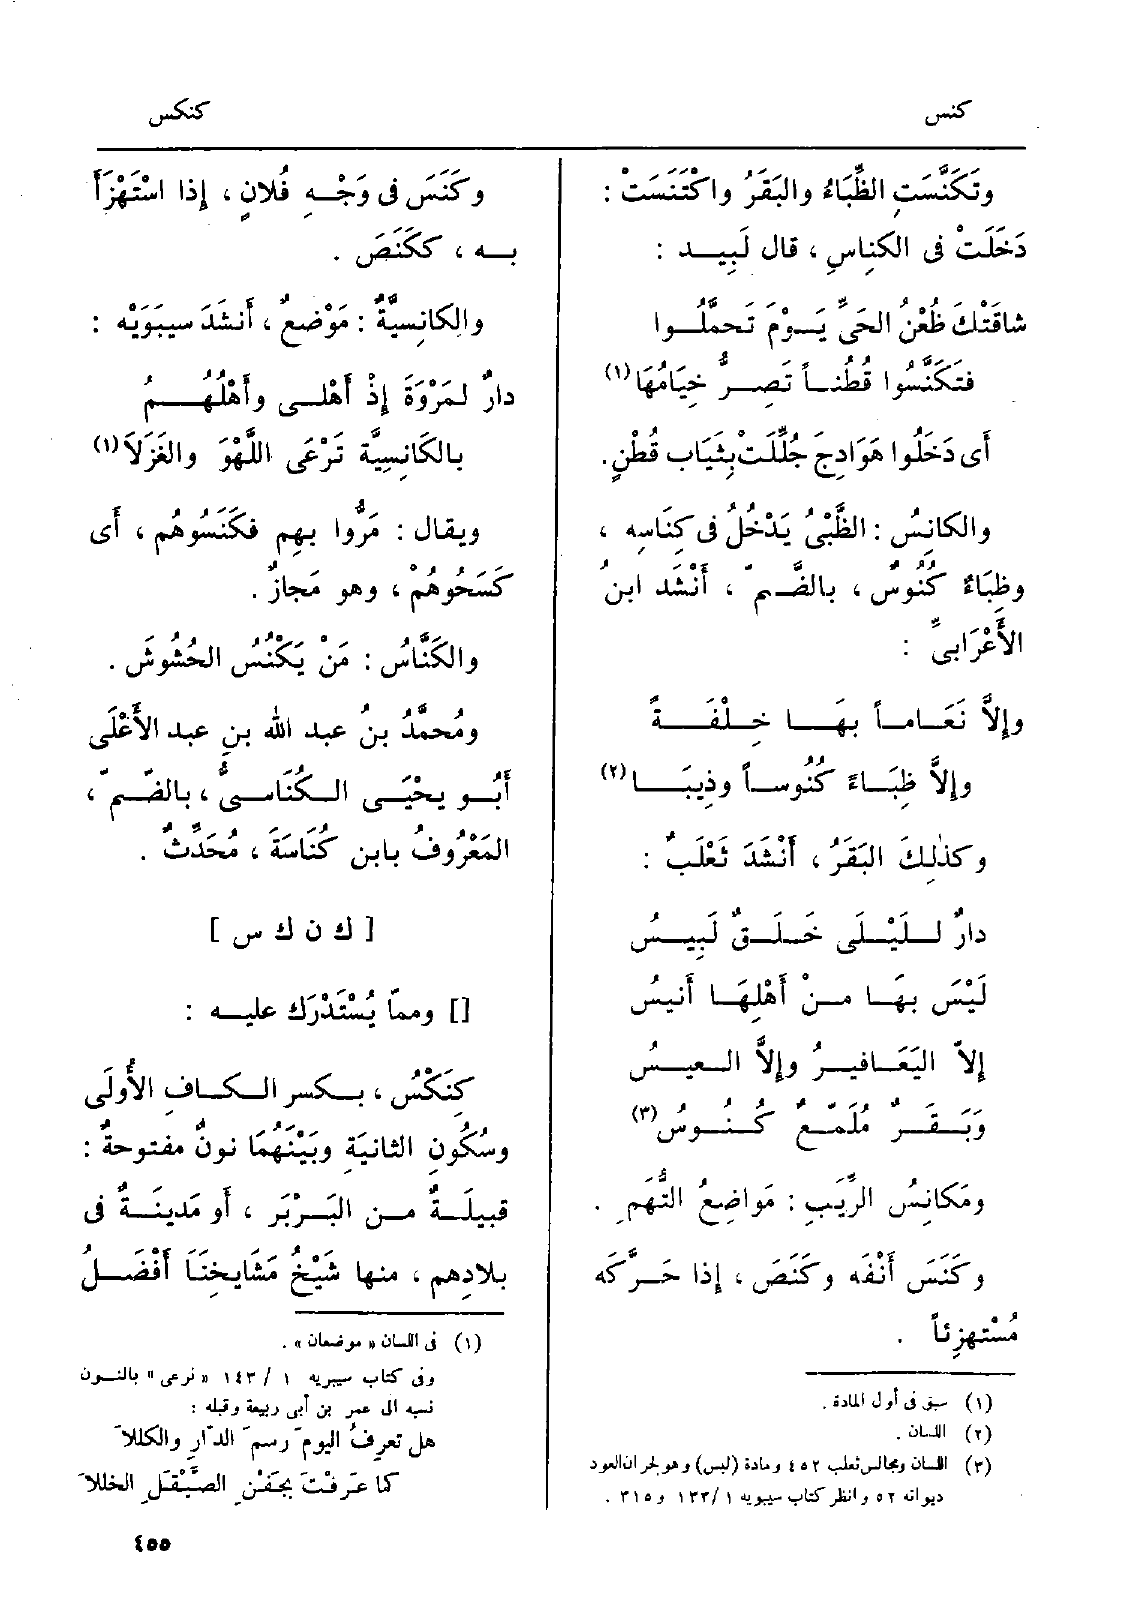 كنس
كنكس
وتَكَنَّسَتِ الظِّبَاءُ والبَقَرُ واكْتَنَسَتْ :
دَخَلَتْ فى الكِناسِ ، قال لَبِيد :
شاقَتْكَ ظُعْنُ الحَىِّ يَوْمَ تَحمَّلُوا
فتَكَنَّسُوا قُطْناً تَصِرُّ خِيَامُهَا (١)
أَى دَخَلُوا هَوَادِجَ جُلِّلَتْ بثِيَاب قُطْنٍ.
والكانِسُ : الظَّبْىُ يَدْخُلُ فى كِنَاسِه ،
وظِبَاءٌ كُنُوسٌ ، بالضَّمّ ، أَنْشَد ابنُ
الأَعْرَابىِّ :
وإِلاَّ نَعَاماً بهَا خِلْفَةً
وإِلاَّ ظِبَاءً كُنُوساً وذِيبَا (٢)
وكذٰلِكَ البَقَرُ ، أَنْشَدَ ثَعْلَبٌ :
دارٌ لِلَيْلَى خَلَقٌ لَبِيسُ
لَيْسَ بهَا مِنْ أَهْلِهَا أَنيسُ
إِلاّ اليَعَافيرُ وإِلاَّ العيسُ
وَبَقَرٌ مُلَمَّعٌ كُنُوسُ (٣)
ومَكانِسُ الرِّيَبِ : مَواضِعُ التُّهَمِ .
وكَنَسَ أَنْفَه وكَنَصَ ، إِذا حَرَّكَه
مُسْتهزِئاً .
(١) سبق فى أول المادة .
(٢) اللسان .
(٣) اللسان ومجالس ثعلب ٤٥٢ ومادة (لبس) وهو لجران العود
ديوانه ٥٢ وانظر كتاب سيبويه ١/١٣٣ و ٣١٥ .
وكَنَسَ فى وَجْهِ فُلانٍ ، إِذا اسْتَهْزَأَ
به ، ككَنَصَ .
والكانِسِيَّةُ : مَوْضعٌ ، أَنشَدَ سيبَوَيْه :
دارٌ لمَرْوَةَ إِذْ أَهْلى وأَهْلُهُمُ
بالكَانِسِيَّة تَرْعَى اللَّهْوَ والغَزَلاَ (١)
ويقال : مَرُّوا بهِم فكَنَسُوهُم ، أَى
كَسَحُوهُمْ ، وهو مَجازٌ .
والكَنَّاسُ : مَنْ يَكْنُسُ الحُشُوشَ .
ومُحمَّدُ بنُ عبد الله بنِ عبد الأَعْلَى
أَبُو يحْيَى الكُنَاسىُّ ، بالضّمّ ،
المَعْرُوفُ بابن كُنَاسَةَ ، مُحَدِّثٌ .
[ ك ن ك س ]
[] ومماّ يُسْتَدْرَك عليه :
كِنَكْسُ ، بكسر الكافِ الأُولَى
وسُكُونِ الثانيَةِ وبَيْنَهُمَا نونٌ مفتوحةٌ :
قبيلَةٌ من البَرْبَر ، أَو مَدينَةٌ فى
بلادِهم ، منها شَيْخُ مَشَايخِنَا أَفْضَلُ
(١) فى اللسان « موضعان » .
وفى كتاب سيبويه ١ / ١٤٣ « نرعى » بالنون
نسبه الى عمر بن أبى ربيعة وقبله :
هل تعرِفُ اليومَ رسمَ الدّارِ والكللاَ
كما عَرفْتَ بجَفْنِ الصَّيْقَلِ الخللاَ
٤٥٥